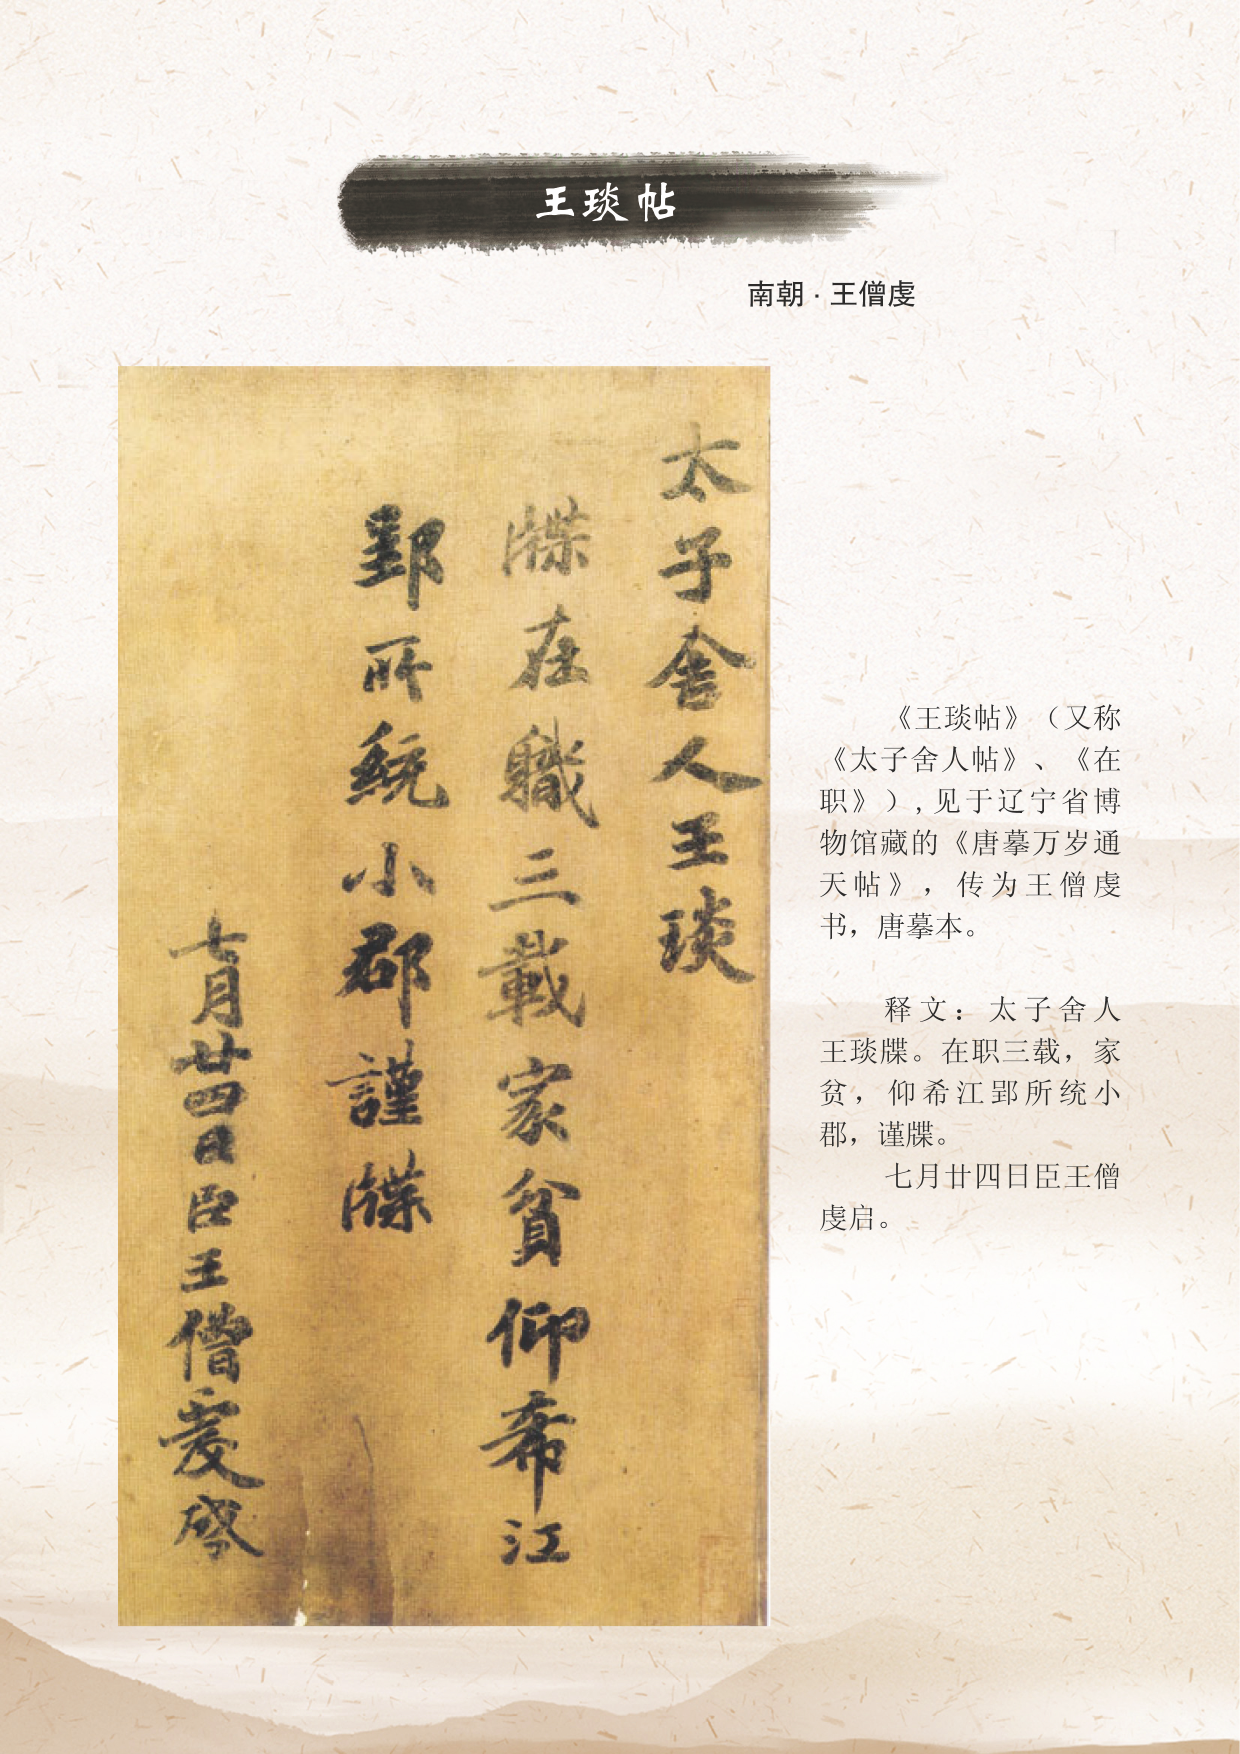 王琰帖
南朝·王僧虔
太子舍人王琰
牒在職三載家貧仰希江
郢所統小郡謹牒
七月廿四日臣王僧虔啓
《王琰帖》（又称
《太子舍人帖》、《在
职》）,见于辽宁省博
物馆藏的《唐摹万岁通
天帖》，传为王僧虔
书，唐摹本。
释文：太子舍人
王琰牒。在职三载，家
贫，仰希江郢所统小
郡，谨牒。
七月廿四日臣王僧
虔启。